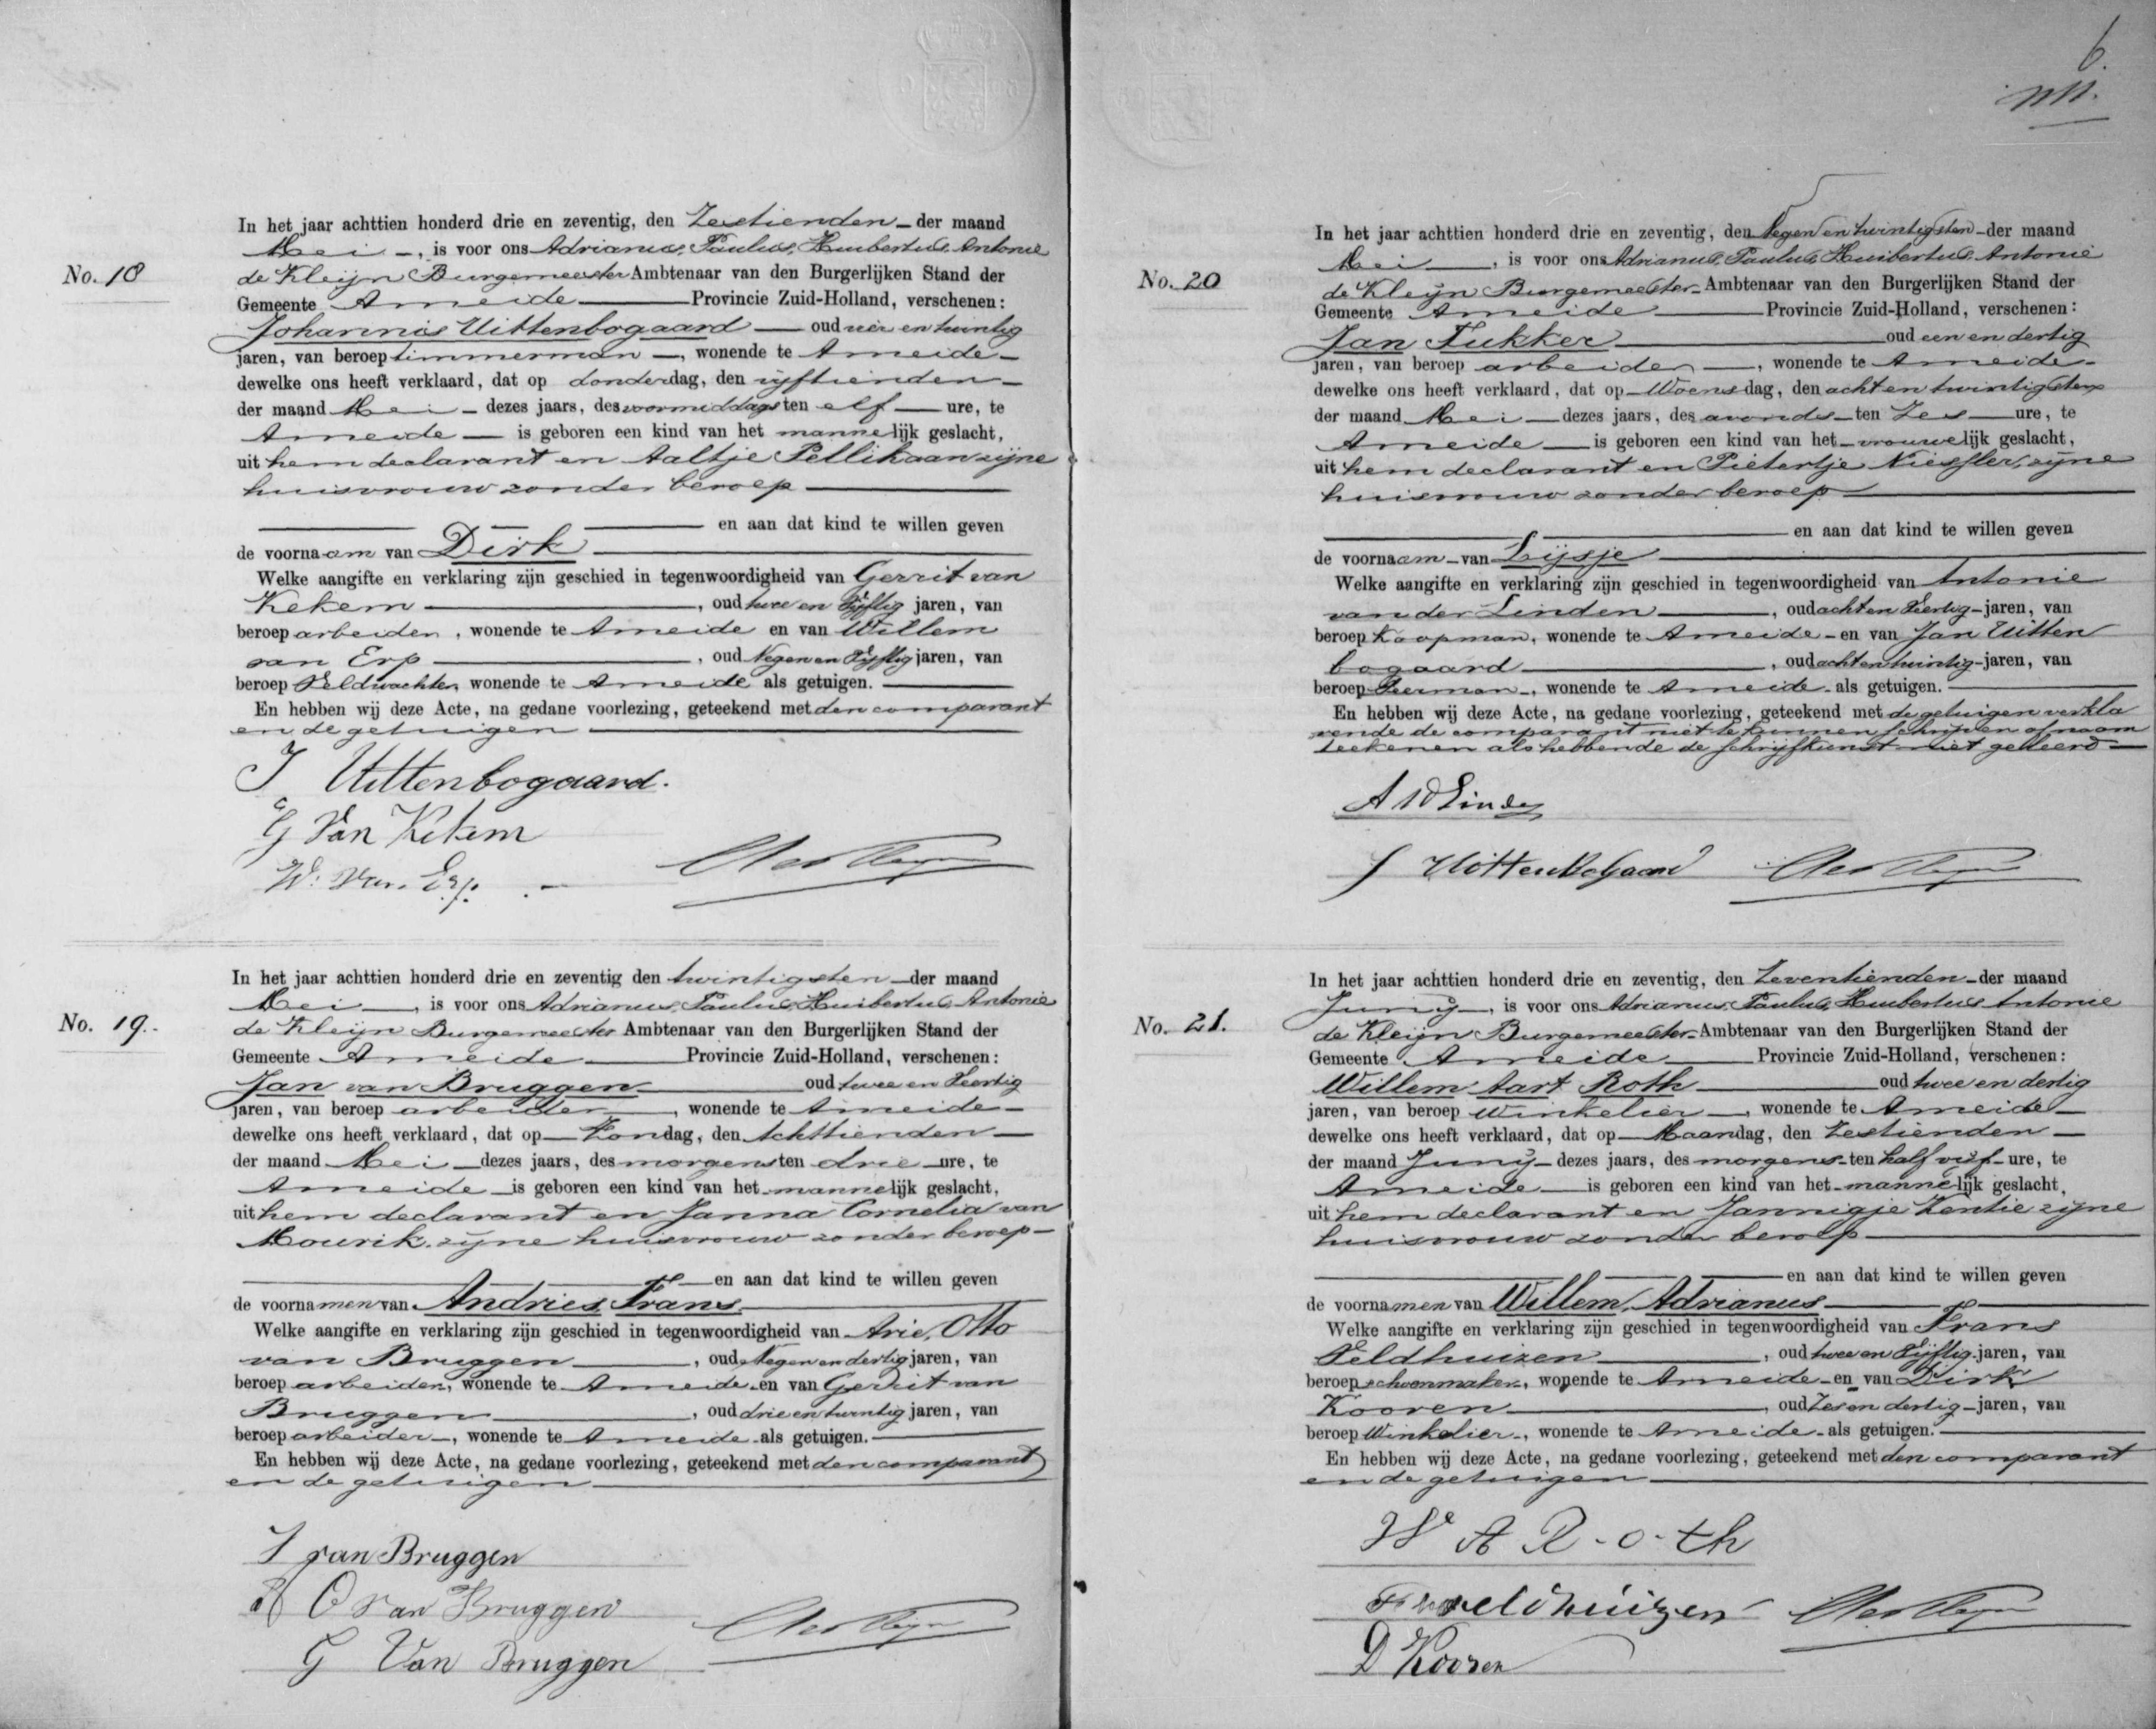 No. 18
In het jaar achttien honderd drie en zeventig, den Zestienden der maand
Mei, is voor ons Adrianus, Paulus, Huibertus, Antonie
de Kleijn Burgemeester Ambtenaar van den Burgerlijken Stand der
Gemeente Ameide Provincie Zuid-Holland, verschenen:
Johannis Uittenbogaard oud vier en twintig
jaren, van beroep timmerman, wonende te Ameide
dewelke ons heeft verklaard, dat op donderdag, den vijftienden
der maand Mei dezes jaars, des voormiddags ten elf ure, te
Ameide is geboren een kind van het mannelijk geslacht,
uit hem declarant en Aaltje Pellikaan zijne
huisvrouw zonder beroep
en aan dat kind te willen geven
de voornaam van Dirk
Welke aangifte en verklaring zijn geschied in tegenwoordigheid van Gerrit van
Kekem, oud twee en Vijftig jaren, van
beroep arbeider, wonende te Ameide en van Willem
van Erp, oud Negen en Vijftig jaren, van
beroep Veldwachter, wonende te Ameide als getuigen.
En hebben wij deze Acte, na gedane voorlezing, geteekend met den comparant
en de getuigen
J Uittenbogaard.
G Van Kekem
W: Van Erp.
No. 19.
In het jaar achttien honderd drie en zeventig den twintigsten der maand
Mei, is voor ons Adrianus, Paulus, Huibertus, Antonie
de Kleijn Burgemeester Ambtenaar van den Burgerlijken Stand der
Gemeente Ameide Provincie Zuid-Holland, verschenen:
Jan van Bruggen oud twee en Veertig
jaren, van beroep arbeider, wonende te Ameide
dewelke ons heeft verklaard, dat op Zondag, den Achttienden
der maand Mei dezes jaars, des morgens ten drie ure, te
Ameide is geboren een kind van het mannelijk geslacht,
uit hem declarant en Janna Cornelia van
Mourik, zijne huisvrouw zonder beroep
en aan dat kind te willen geven
de voornamen van Andries, Frans
Welke aangifte en verklaring zijn geschied in tegenwoordigheid van Arie, Otto
van Bruggen, oud Negen en dertig jaren, van
beroep arbeider, wonende te Ameide en van Gerrit van
Bruggen, oud drie en twintig jaren, van
beroep arbeider, wonende te Ameide als getuigen.
En hebben wij deze Acte, na gedane voorlezing, geteekend met den comparant
en de getuigen
J van Bruggen
A O van Bruggen
G Van Bruggen
6.
No. 20
In het jaar achttien honderd drie en zeventig, den Negen en twintigsten der maand
Mei, is voor ons Adrianus, Paulus, Huibertus, Antonie
de Kleijn Burgemeester Ambtenaar van den Burgerlijken Stand der
Gemeente Ameide Provincie Zuid-Holland, verschenen:
Jan Fukker oud een en dertig
jaren, van beroep arbeider, wonende te Ameide
dewelke ons heeft verklaard, dat op Woensdag, den acht en twintigsten
der maand Mei dezes jaars, des avonds ten Zes ure, te
Ameide is geboren een kind van het vrouwelijk geslacht,
uit hem declarant en Pietertje Niessler, zijne
huisvrouw zonder beroep
en aan dat kind te willen geven
de voornaam van Lijsje
Welke aangifte en verklaring zijn geschied in tegenwoordigheid van Antonie
van der Linden, oud acht en Veertig jaren, van
beroep Koopman, wonende te Ameide en van Jan Uitten
bogaard, oud acht en twintig jaren, van
beroep Veerman, wonende te Ameide als getuigen.
En hebben wij deze Acte, na gedane voorlezing, geteekend met de getuigen verkla
rende de comparant niet te kunnen schrijven of naam
teekenen als hebbende de schrijfkunst niet geleerd
A vd Linden
J Uittenbogaard
No. 21.
In het jaar achttien honderd drie en zeventig, den Zeventienden der maand
Junij, is voor ons Adrianus, Paulus, Huibertus Antonie
de Kleijn Burgemeester Ambtenaar van den Burgerlijken Stand der
Gemeente Ameide Provincie Zuid-Holland, verschenen:
Willem Aart Roth oud twee en dertig
jaren, van beroep Winkelier, wonende te Ameide
dewelke ons heeft verklaard, dat op Maandag, den Zestienden
der maand Junij dezes jaars, des morgens ten half vijf ure, te
Ameide is geboren een kind van het mannelijk geslacht,
uit hem declarant en Jannigje Kentie zijne
huisvrouw zonder beroep
en aan dat kind te willen geven
de voornamen van Willem, Adrianus
Welke aangifte en verklaring zijn geschied in tegenwoordigheid van Frans
Veldhuizen, oud twee en Vijftig jaren, van
beroep schoenmaker, wonende te Ameide en van Dirk
Kooren, oud Zes en dertig jaren, van
beroep Winkelier, wonende te Ameide als getuigen.
En hebben wij deze Acte, na gedane voorlezing, geteekend met den comparant
en de getuigen
W A R-o-th
F veldhuizen
D Kooren